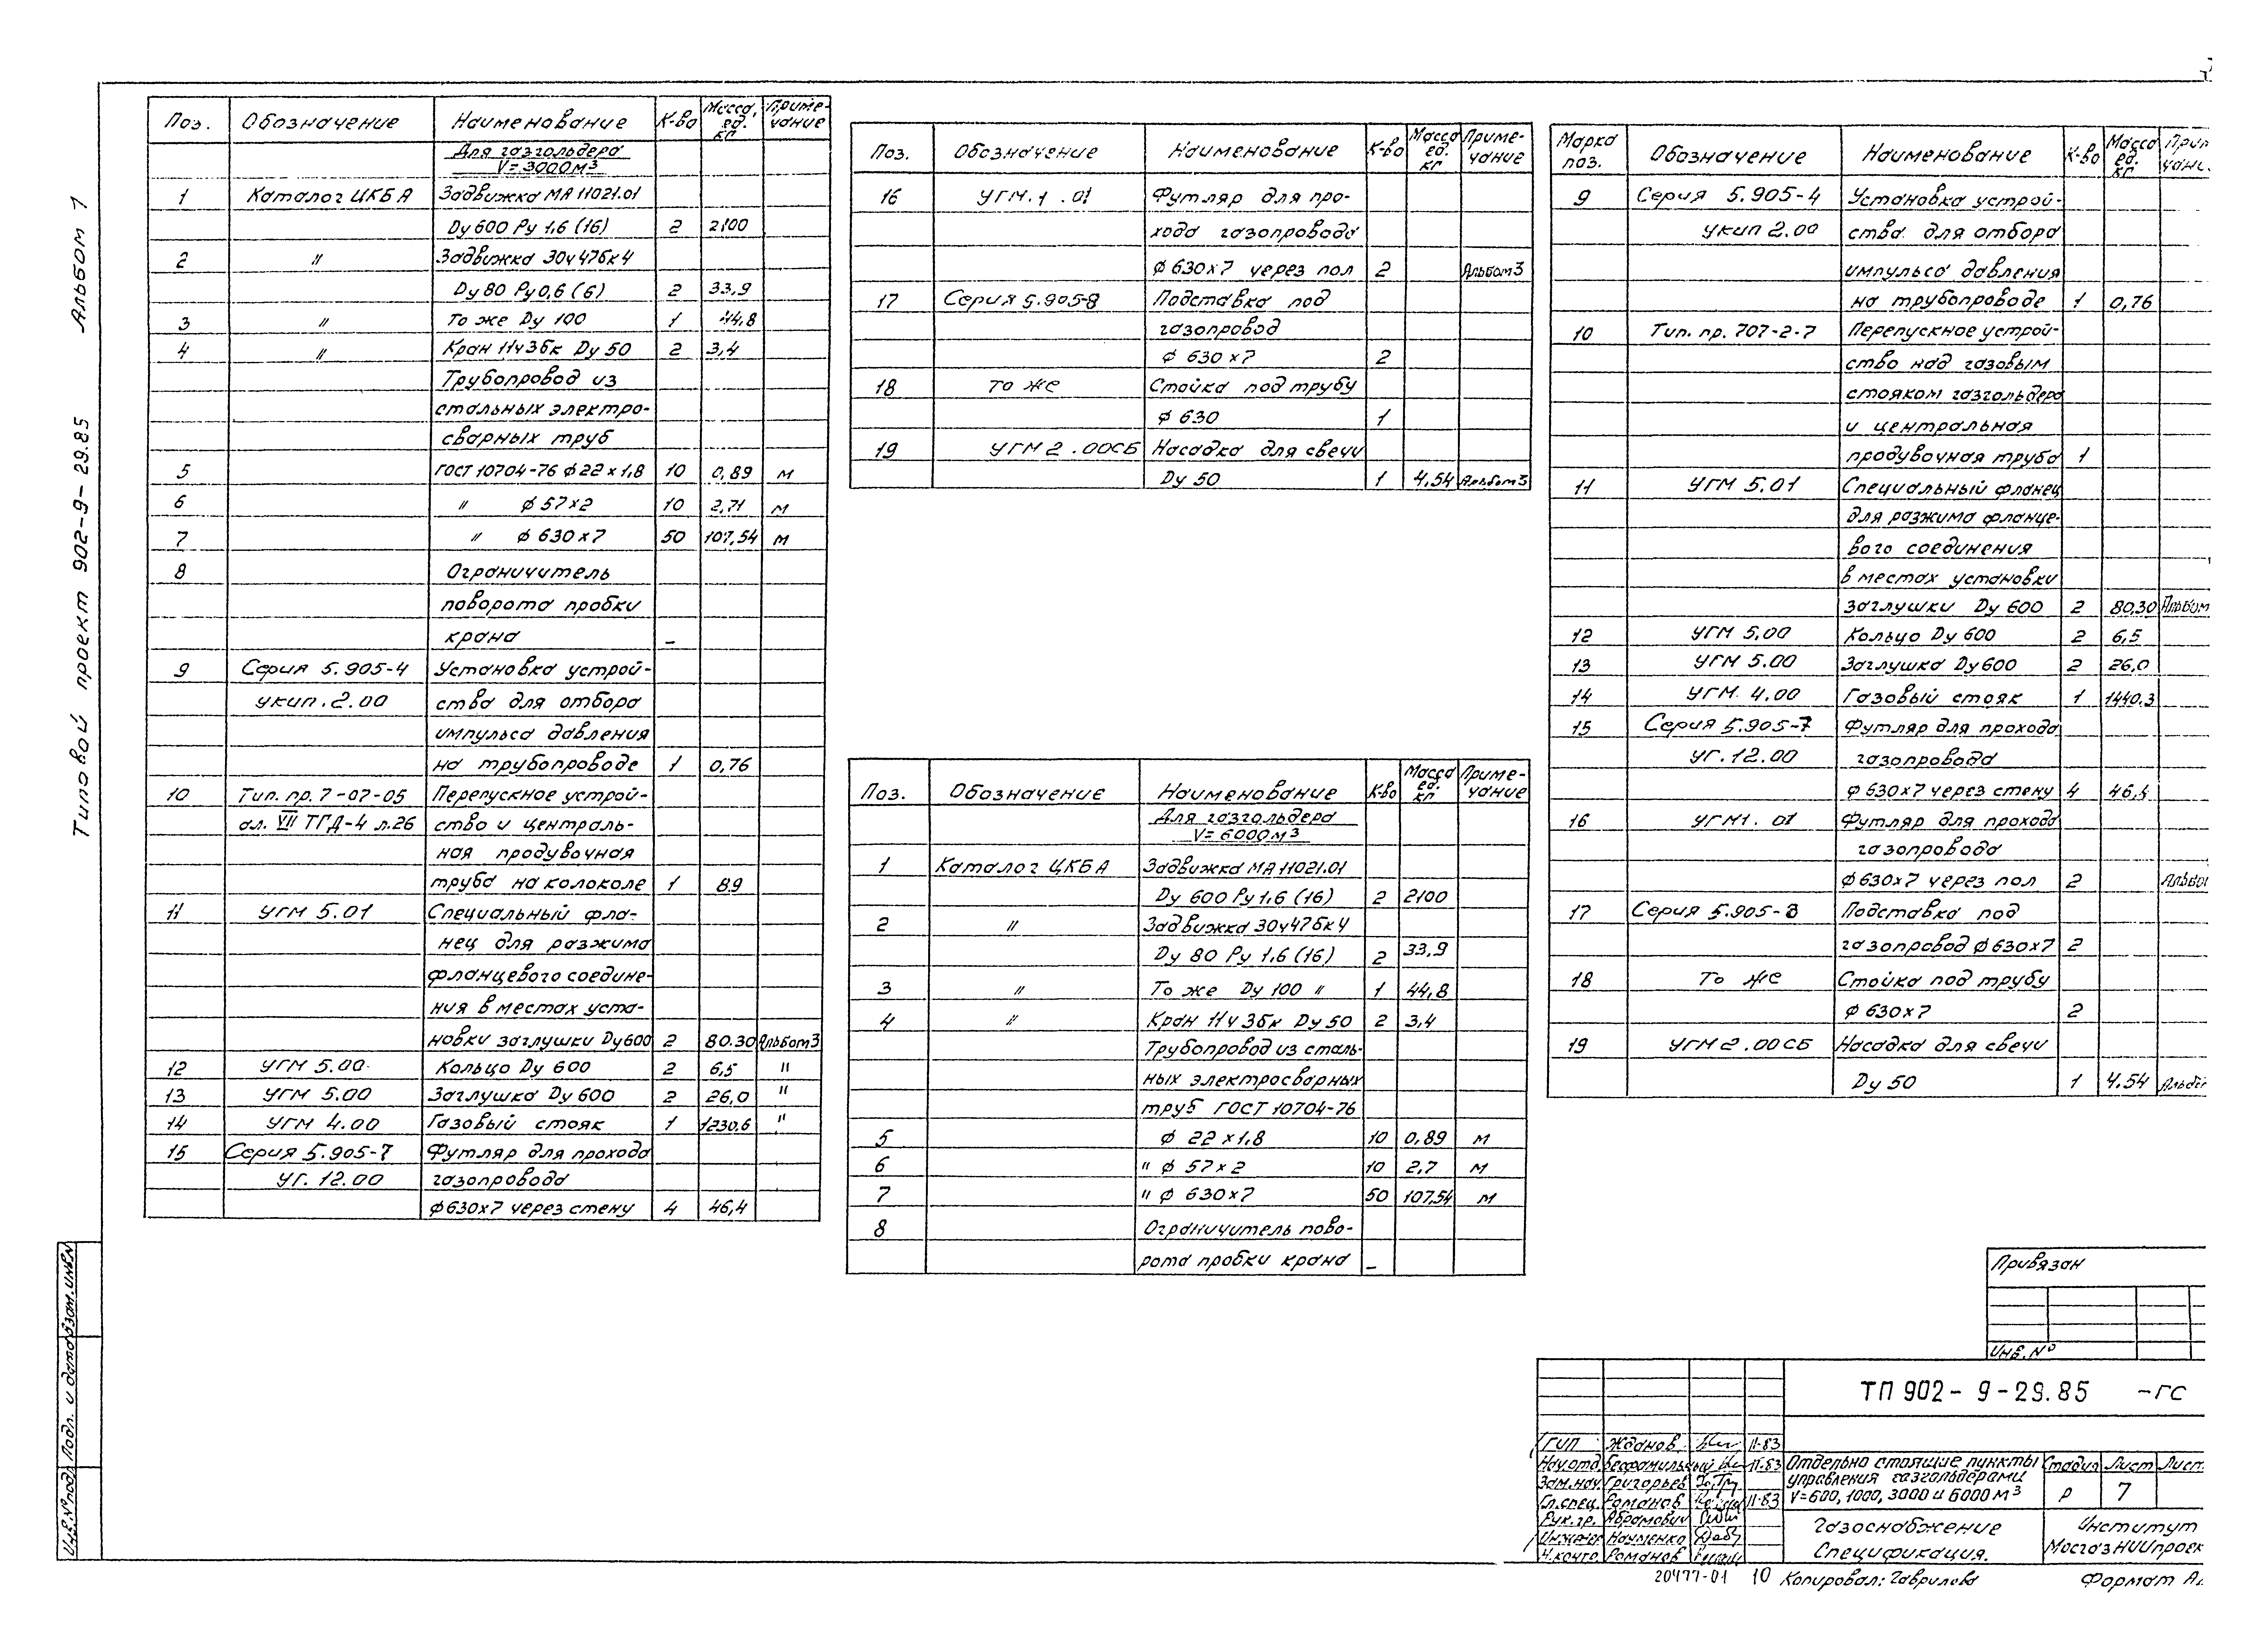 Типовой проект 902-9-29.85 Альбом 1
Поз. Обозначение Наименование К-во Масса, ед. кг Приме-чание
Для газгольдера
V=3000м³
1 Каталог ЦКБА Задвижка МА 11021.01
Ду 600 Ру 1,6 (16) 2 2100
2 〃 Задвижка 30ч47бк4
Ду 80 Ру 0,6 (6) 2 33,9
3 〃 То же Ду 100 1 44,8
4 〃 Кран 11ч3бк Ду 50 2 3,4
Трубопровод из
стальных электро-
сварных труб
5 ГОСТ 10704-76 ф22х1,8 10 0,89 м
6 〃 ф57х2 10 2,71 м
7 〃 ф630х7 50 107,54 м
8 Ограничитель
поворота пробки
крана –
9 Серия 5.905-4 Установка устрой-
укип.2.00 ства для отбора
импульса давления
на трубопроводе 1 0,76
10 Тип. пр. 7-07-05 Перепускное устрой-
ал. VII ТГД-4 л.26 ство и централь-
ная продувочная
труба на колоколе 1 89
11 УГМ 5.01 Специальный фла-
нец для разжима
фланцевого соедине-
ния в местах уста-
новки заглушки Ду600 2 80.30 Альбом3
12 УГМ 5.00 Кольцо Ду 600 2 6,5 〃
13 УГМ 5.00 Заглушка Ду 600 2 26,0 〃
14 УГМ 4.00 Газовый стояк 1 1230,6 〃
15 Серия 5.905-7 Футляр для прохода
УГ. 12.00 газопровода
ф630х7 через стену 4 46,4
Поз. Обозначение Наименование К-во Масса ед. кг Приме-чание
16 УГМ.1.01 Футляр для про-
хода газопровода
ф630х7 через пол 2 Альбом3
17 Серия 5.905-8 Подставка под
газопровод
ф 630х7 2
18 То же Стойка под трубу
ф 630 1
19 УГМ2.00СБ Насадка для свечи
Ду 50 1 4,54 Альбом3
Поз. Обозначение Наименование К-во Масса ед. кг Приме-чание
Для газгольдера
V=6000м³
1 Каталог ЦКБА Задвижка МА 11021.01
Ду 600 Ру 1,6 (16) 2 2100
2 〃 Задвижка 30ч47бк4
Ду 80 Ру 1,6 (16) 2 33,9
3 〃 То же Ду 100 〃 1 44,8
4 〃 Кран 11ч3бк Ду 50 2 3,4
Трубопровод из сталь-
ных электросварных
труб ГОСТ 10704-76
5 ф 22х1,8 10 0,89 м
6 〃 ф 57х2 10 2,7 м
7 〃 ф 630х7 50 107,54 м
8 Ограничитель пово-
рота пробки крана –
Марка поз. Обозначение Наименование К-во Масса ед. кг
9 Серия 5.905-4 Установка устрой-
укип 2.00 ства для отбора
импульса давления
на трубопроводе 1 0,76
10 Тип. пр. 707-2-7 Перепускное устрой-
ство над газовым
стояком газгольдера
и центральная
продувочная труба 1
11 УГМ 5.01 Специальный фланец
для разжима фланце-
вого соединения
в местах установки
заглушки Ду 600 2 80,30 Альбом
12 УГМ 5,00 Кольцо Ду 600 2 6,5
13 УГМ 5.00 Заглушка Ду600 2 26,0
14 УГМ. 4.00 Газовый стояк 1 1440.3
15 Серия 5.905-7 Футляр для прохода
УГ.12.00 газопровода
ф 630х7 через стену 4 46,4
16 УГМ1.01 Футляр для прохода
газопровода
ф630х7 через пол 2
17 Серия 5.905-8 Подставка под
газопровод ф630х7 2
18 То же Стойка под трубу
ф 630х7 2
19 УГМ2.00СБ Насадка для свечи
Ду 50 1 4.54
Привязан
Инв.№
ТП 902-9-29.85 -ГС
ГИП Жданов 11-83
Нач.отд. Бесфамильный 11.83
Зам.нач. Григорьев
Гл.спец. Романов 11-83
Рук.гр. Абрамович
Инженер Науменко
Н.контр. Романов
Отдельно стоящие пункты
управления газгольдерами
V=600, 1000, 3000 и 6000 м³
Стадия Лист
Р 7
Газоснабжение
Спецификация.
Институт
МосгазНИИпроек
20477-01 10 Копировал: Гаврилова Формат
Инв.№подл. Подп. и дата Взам.инв.№